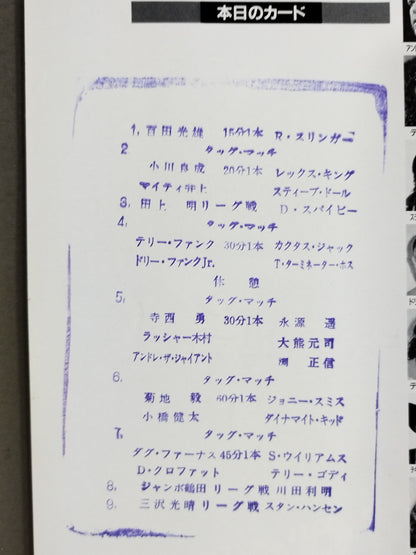 本日のカード
1, 百田光雄 15分1本 R・スリンガー
2 タッグ・マッチ
小川良成 20分1本 レックス・キング
マイティ井上 スティーブ・ドール
3, 田上 明 リーグ戦 D・スパイビー
4, タッグ・マッチ
テリー・ファンク 30分1本 カクタス・ジャック
ドリー・ファンクJr. T・ターミネーター・ホス
休 憩
5, タッグ・マッチ
寺西 勇 30分1本 永源 遥
ラッシャー木村 大熊元司
アンドレ・ザ・ジャイアント 渕 正信
6. タッグ・マッチ
菊地 毅 60分1本 ジョニー・スミス
小橋健太 ダイナマイト・キッド
7, タッグ・マッチ
ダグ・ファーナス 45分1本 S・ウイリアムス
D・クロファット テリー・ゴディ
8. ジャンボ鶴田 リーグ戦 川田利明
9. 三沢光晴 リーグ戦 スタン・ハンセン